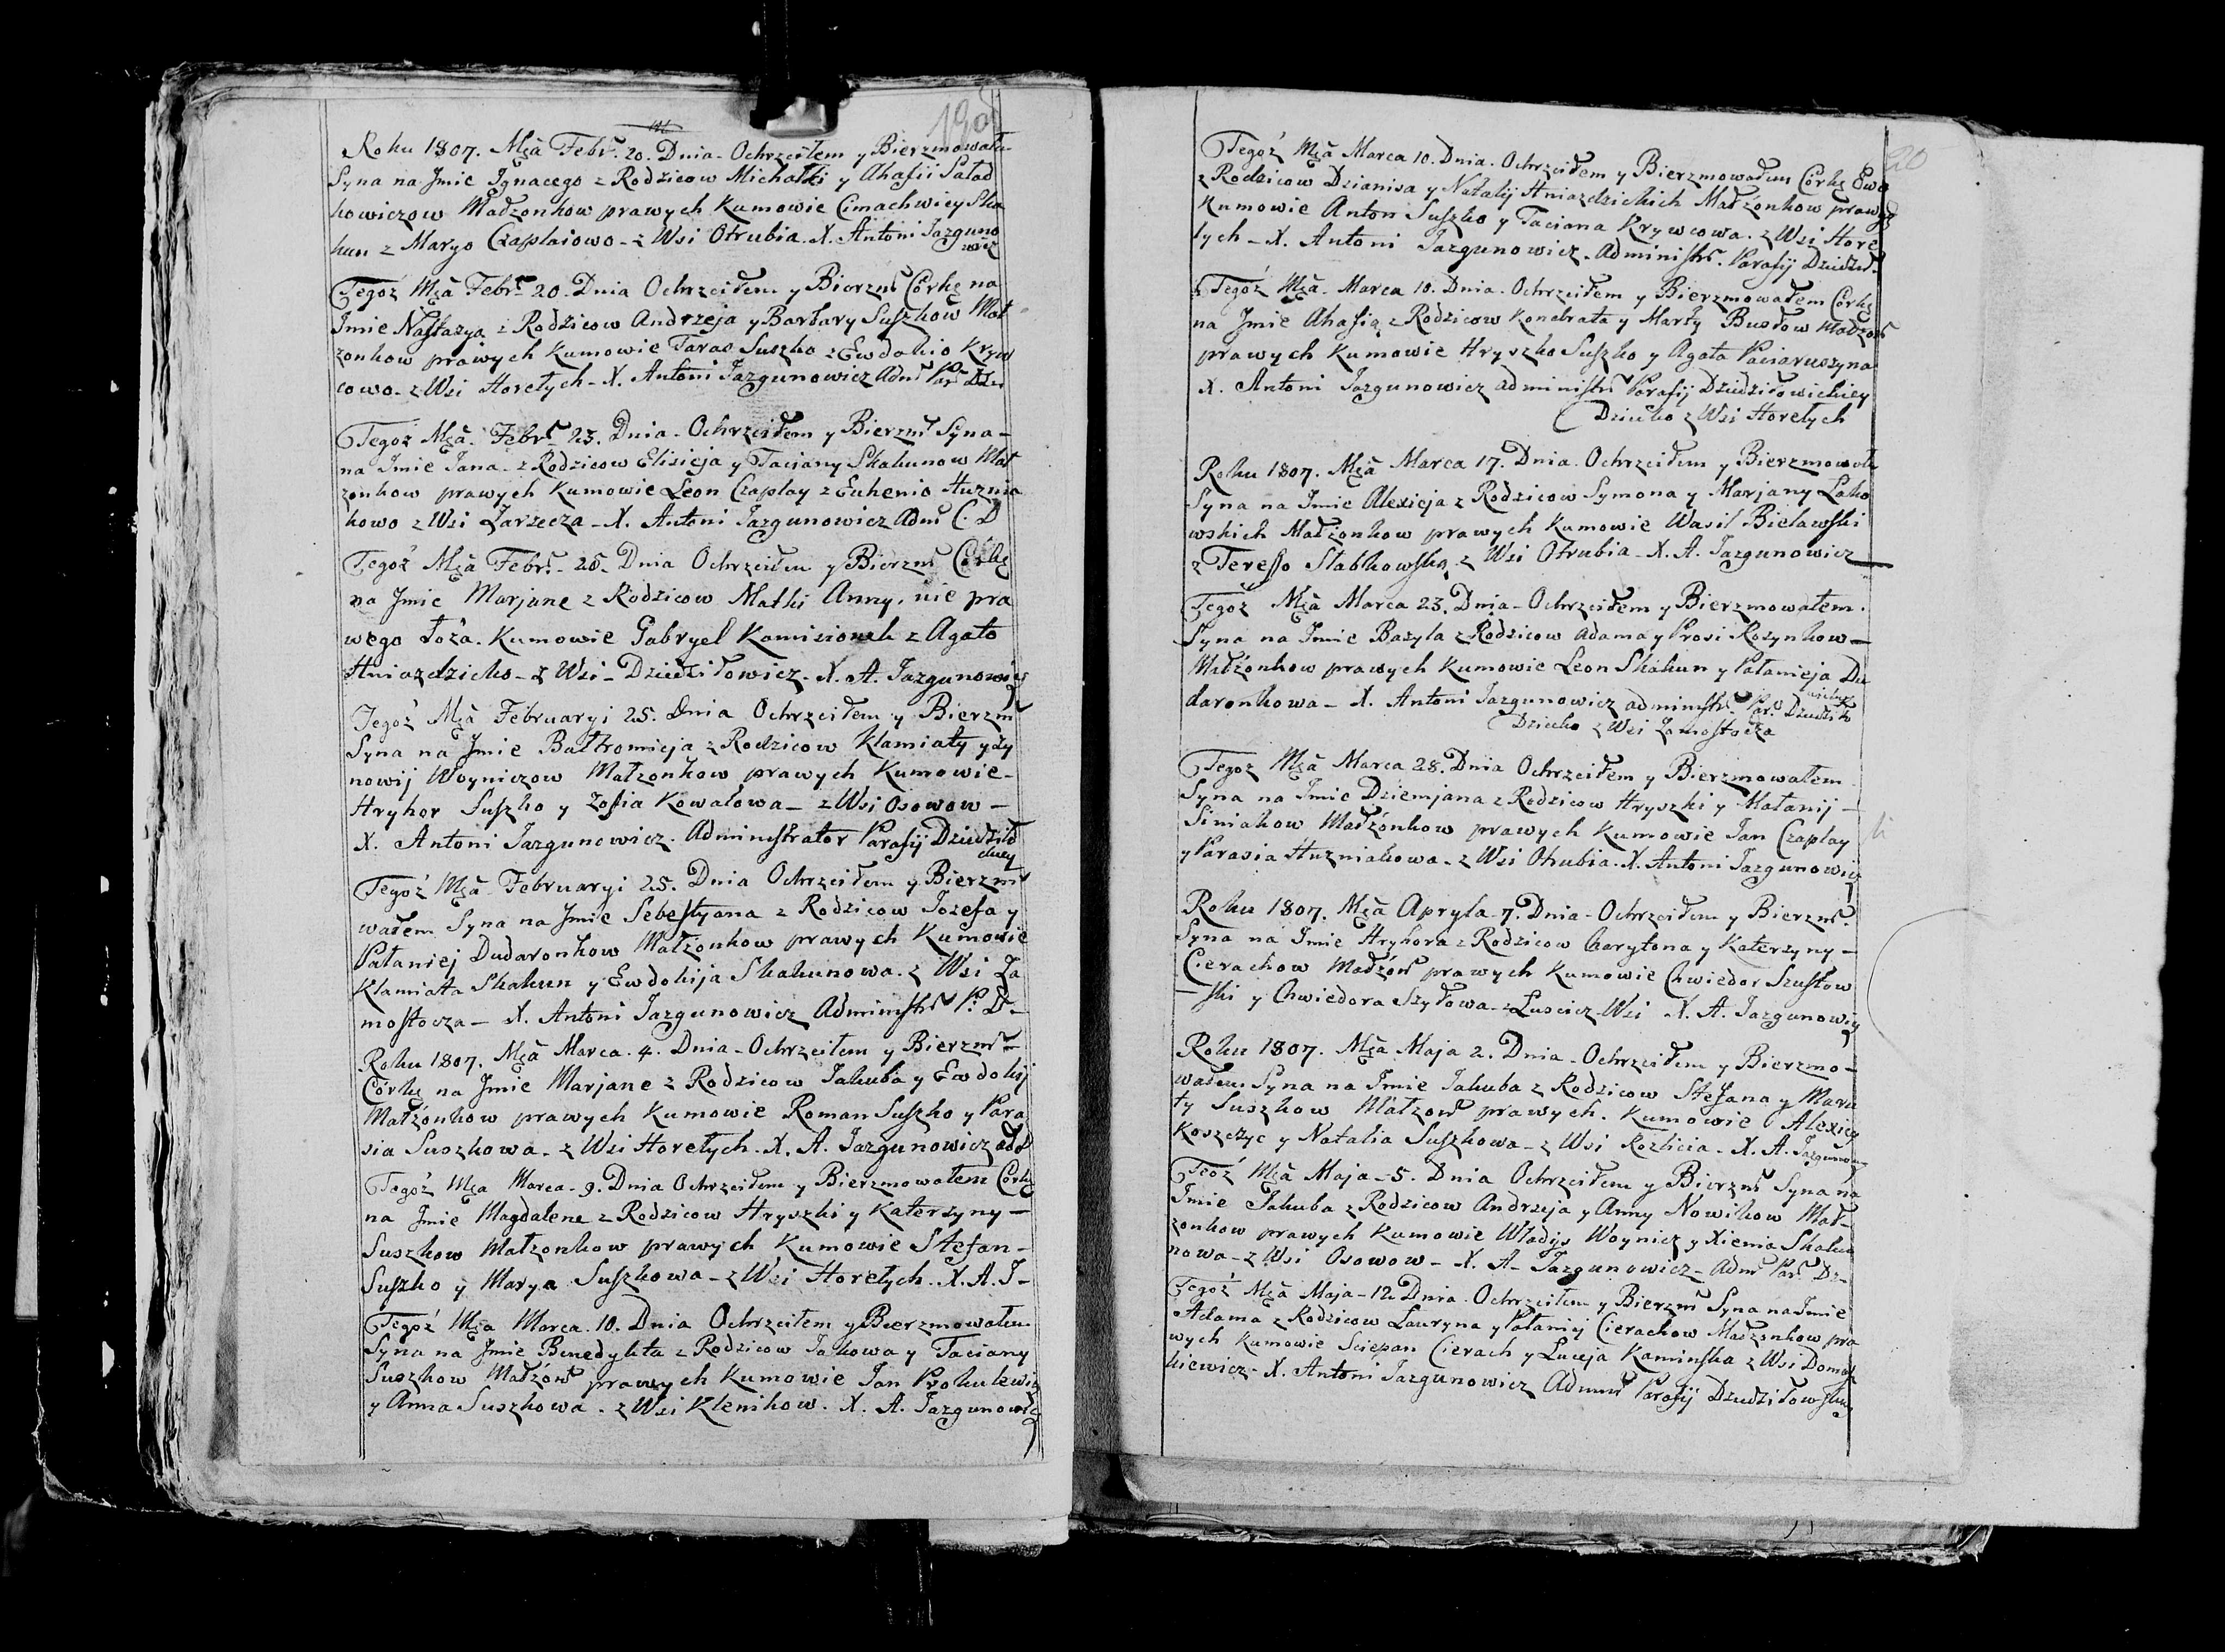 190
Roku 1807. Mcā Febr. 20. Dnia - Ochrzciłem y Bierzmowału
Syna na Jmie Jgnacego z Rodzicow Michałki y Ahafii Saład
kowiczow Małżonkow prawych Kumowie Cimachwiey Ska
kun z Maryo Czaplaiowo - z Wsi Otrubia. X. Antoni Jazguno
wicz
Tegoż Mcā Febr. 20. Dnia Ochrzciłem y Bierzm Córkę na
Jmie Nastazyą z Rodzicow Andrzeja y Barbary Suszkow Mał
zonkow prawych Kumowie Taras Suszko z Ewdokio Kryw
cowo - z Wsi Horełych - X. Antoni Jazgunowicz Adm Par Dzi
Tegoż Mcā. Febr. 23. Dnia - Ochrzciłem y Bierzm Syna -
na Jmie Jana - z Rodzicow Elisieja y Taciany Skakunow Mał
zonkow prawych Kumowie Leon Czaplay z Euhenio Huznia
kowo z Wsi Zarzecza - X. Antoni Jazgunowicz Adm C. D
Tegoż Mcā Febr. - 25. Dnia Ochrzciłem y Bierzm Córkę
na Jmie Marjane z Rodzicow Matki Anny, nie pra
wego Łoża. Kumowie Gabryel Kamisionek z Agato
Hniazdzicko - z Wsi - Dziedziłowicz - X. A. Jazgunowicz
Tegoż Mcā Februaryi 25. Dnia Ochrzciłem y Bierzm
Syna na Jmie Bałtromieja z Rodzicow Klamiaty y Zy
nowij Woyniczow Małzonkow prawych Kumowie -
Hryhor Suszko y Zofia Kowalowa - z Wsi Osowow -
X. Antoni Jazgunowicz. Administrator Parafij Dziedziło
Tegoż Mcā Februaryi 25. Dnia Ochrzciłem y Bierzm
wałem Syna na Jmie Sebestyana z Rodzicow Jozefa y
Pałaniej Dudaronkow Małzonkow prawych Kumowie
Klamiata Skakun y Ewdokija Skakunowa - z Wsi Za
mostocza - X. Antoni Jazgunowicz Administr P. D -
Roku 1807. Mcā Marca. 4. Dnia - Ochrzciłem y Bierzm -
Córkę na Jmie Marjane z Rodzicow Jakuba y Ewdokij
Małżonkow prawych Kumowie Roman Suszko y Para
sia Suszkowa - z Wsi Horełych - X. A. Jazgunowicz
Tegoż Mca Marca - 9. Dnia Ochrzciłem y Bierzmowałem Córkę
na Jmie Magdalene z Rodzicow Hryszki y Katerzyny -
Suszkow Małzonkow prawych Kumowie Stefan -
Suszko y Marya Suszkowa - z Wsi Horełych. X. A. J -
Tegoż Mca Marca 10. Dnia Ochrzciłem y Bierzmowałem
Syna na Jmie Benedykta z Rodzicow Jakowa y Taciany
Suszkow Małżón prawych Kumowie Jan Prokulewicz
y Anna Suszkowa - z Wsi Klenikow. X. A. Jazgunowicz
20
Tegoż Mcā Marca 10. Dnia. Ochrzciłem y Bierzmowałem Córkę Ewę
z Rodzicow Dzianisa y Natalij Hniazdzickich Małżonkow prawych
Kumowie Anton Suszko y Taciana Krywcowa - z Wsi Hore
łych - X. Antoni Jazgunowicz - Administr. Parafij Dziedził -
Tegoż Mcā. Marca 10. Dnia. Ochrzciłem y Bierzmowałem Córkę
na Jmie Ahafią z Rodzicow Kondrata y Marty Busłow Małżon
prawych Kumowie Hryszko Suszko y Agata Paciaruszyna
X. Antoni Jazgunowicz administr Parafij Dziedziłowickiey
Dziecko z Wsi Horełych
Roku 1807. Mcā Marca 17. Dnia. Ochrzciłem y Bierzmowałe
Syna na Jmie Alexieja z Rodzicow Symona y Marjany Łako
wskich Małżonkow prawych Kumowie Wasil Bielawski
z Teresso Słabkowsko z Wsi Otrubia - X. A. Jazgunowicz
Tegoż Mcā Marca 23. Dnia - Ochrzciłem y Bierzmowałem.
Syna na Jmie Bazyla z Rodzicow Adama y Prosi Rozynkow -
Małżonkow prawych Kumowie Leon Skakun y Pałanieja Du
daronkowa - X. Antoni Jazgunowicz administr. Par. Dziedziło
wickiey
Dziecko z Wsi Zamostocza
Tegoż Mcā Marca 28. Dnia Ochrzciłem y Bierzmowałem
Syna na Jmie Dziemjana z Rodzicow Hryszki y Małanij -
Siniakow Małżonkow prawych Kumowie Jan Czaplay
y Parasia Huzniakowa - z Wsi Otrubia. X. Antoni Jazgunowicz
Roku 1807. Mcā Apryla - 7. Dnia - Ochrzciłem y Bierzm.
Syna na Jmie Hryhora z Rodzicow Charytona y Katerzyny -
Cierachow Małżón prawych Kumowie Chwiedor Szustow
ski y Chwiedora Szyłowa - z Łuscicz Wsi X. A. Jazgunowicz
Roku 1807. Mcā Maja 2. Dnia - Ochrzciłem y Bierzmo -
wałem Syna na Jmie Jakuba z Rodzicow Stefana y Maru
ty Suszkow Małzon prawych. Kumowie Alexiey
Koszczyc y Natalia Suszkowa - z Wsi Rozlicia - X. A. Jazgunow
Teoż Mcā Maja - 5. Dnia Ochrzciłem y Bierzm Syna na
Jmie Jakuba z Rodzicow Andrzeja y Anny Nowikow Mał -
zonkow prawych Kumowie Władys Woynicz y Xienia Skaku
nowa - z Wsi Osowow - X. A - Jazgunowicz - Adm Par. Dz -
Tegoż Mcā Maja - 12. Dnia. Ochrzciłem y Bierzm Syna na Jmie
Adama z Rodzicow Lauryna y Pałaniej Cierachow Małżonkow pra
wych Kumowie Sciepan Cierach y Łuceja Kaminska z Wsi Domasz
kiewicz - X. Antoni Jazgunowicz Admin Parafij Dziedziłow